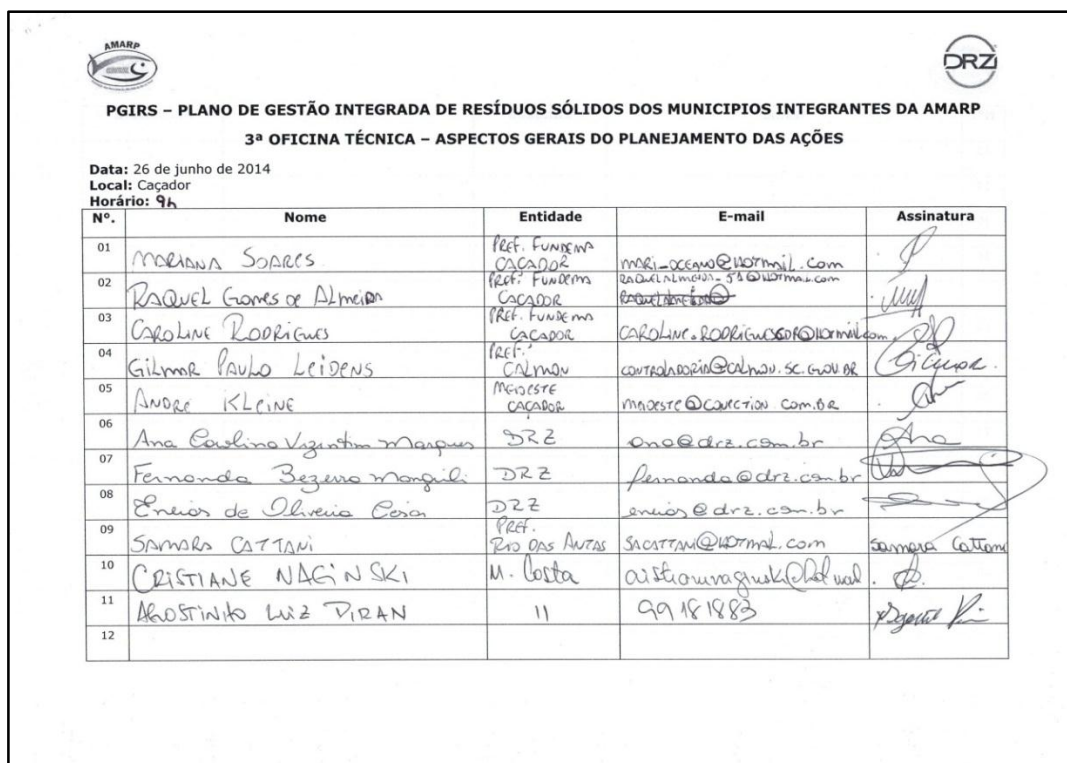 AMARP
DRZ
PGIRS – PLANO DE GESTÃO INTEGRADA DE RESÍDUOS SÓLIDOS DOS MUNICIPIOS INTEGRANTES DA AMARP
3ª OFICINA TÉCNICA – ASPECTOS GERAIS DO PLANEJAMENTO DAS AÇÕES
Data: 26 de junho de 2014
Local: Caçador
Horário: 9h
Nº. Nome Entidade E-mail Assinatura
01 MARIANA SOARES PREF. FUNDEMA CAÇADOR MARI_OCEANO@HOTMAIL.COM
02 RAQUEL GOMES DE ALMEIDA PREF. FUNDEMA CAÇADOR
03 CAROLINE RODRIGUES PREF. FUNDEMA CAÇADOR CAROLINE.RODRIGUESGDR@HOTMAIL.COM
04 GILMAR PAULO LEIDENS PREF. CALMON CONTROLADORIA@CALMON.SC.GOV.BR Gilmar
05 ANDRÉ KLEINE CAÇADOR
06 Ana Carolina Vizintim Marques DRZ ana@drz.com.br Ana
07 Fernanda Bezerra DRZ fernanda@drz.com.br
08 Enéias de Oliveira Cesar DRZ eneias@drz.com.br
09 SAMARA CATTANI PREF. RIO DAS ANTAS SACATTANI@HOTMAIL.COM Samara Cattani
10 CRISTIANE NAGINSKI M. Costa
11 AGOSTINHO LUIZ PIRAN 11 99181883
12